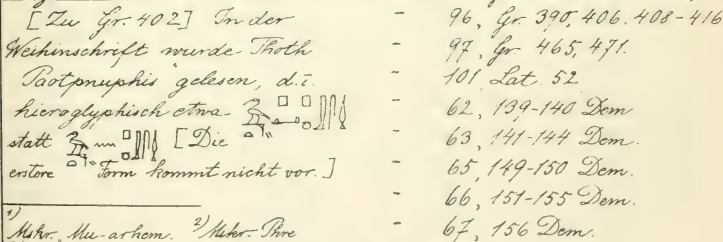 [Zu Gr. 402] In der
Weihinschrift wurde Thoth
Paotpnuphis gelesen, d.i.
hieroglyphisch etwa
statt [Die
erstere Form kommt nicht vor.]
1) Mskr. Mu-arhem. 2) Mskr. Phre
- 96, Gr. 390, 406. 408-416
- 97, Gr 465, 471.
- 101 Lat. 52
- 62, 139-140 Dem
- 63, 141-144 Dem.
- 65, 149-150 Dem.
- 66, 151-155 Dem.
- 67, 156 Dem.